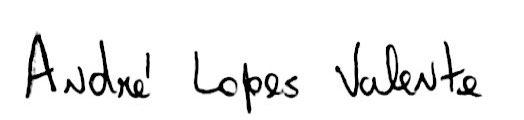 André Lopes Valente